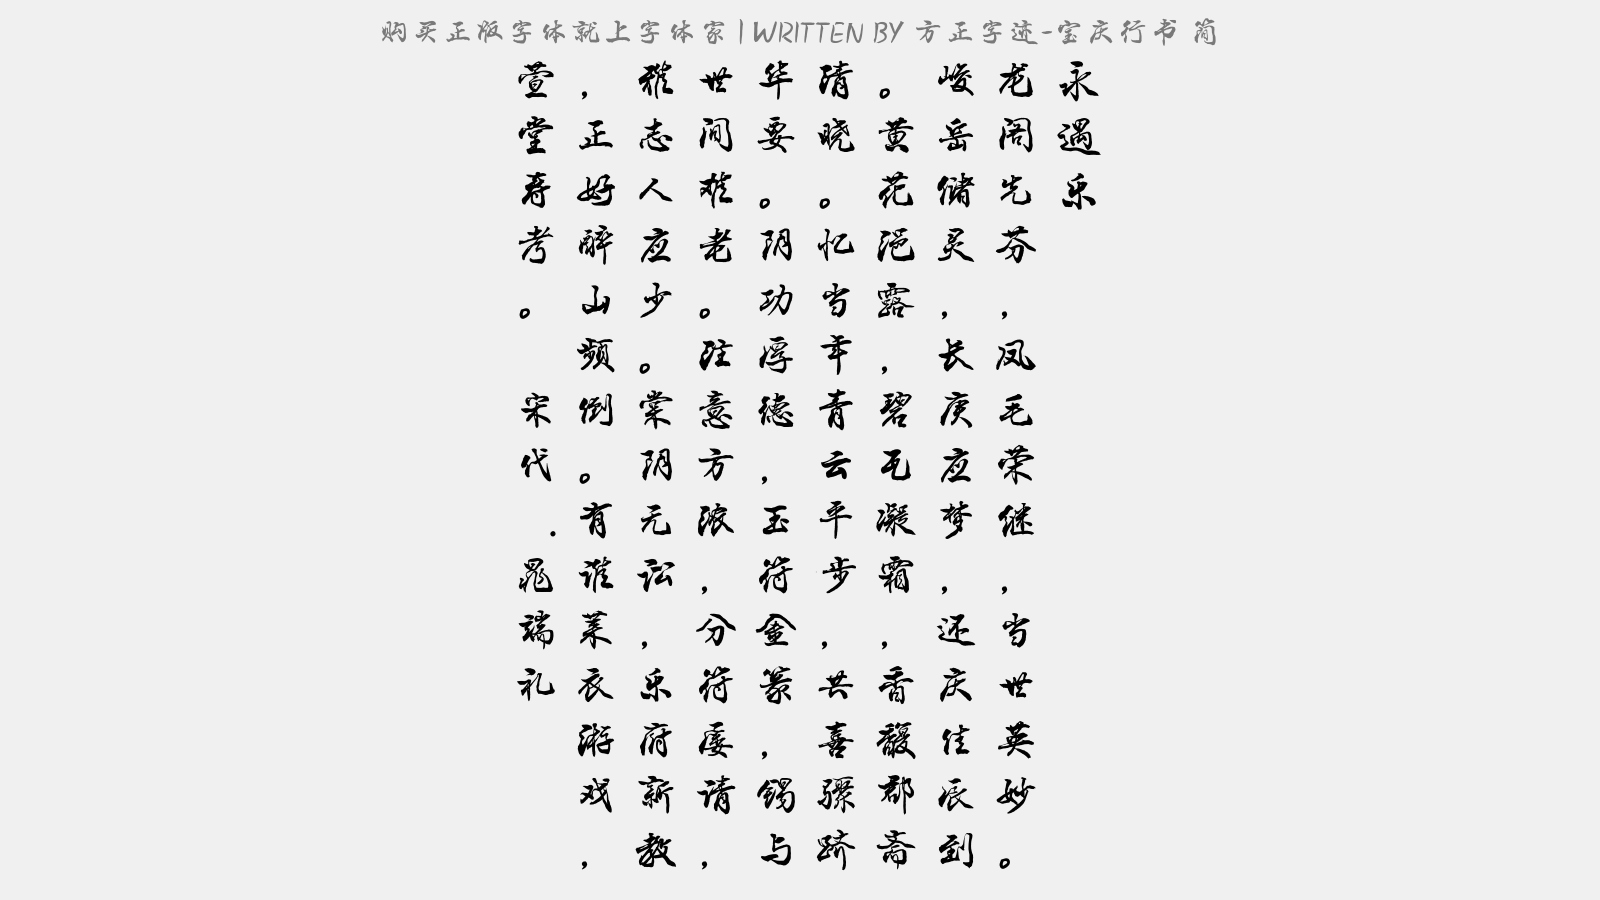 购买正版字体就上字体家|WRITTEN BY 方正字迹-宝庆行书 简
永遇乐
龙阁先芬，凤毛荣继，当世英妙。
峻岳储灵，长庚应梦，还庆佳辰到
。黄花浥露，碧瓦凝霜，香馥郡斋
清晓。忆当年青云平步，共喜骤跻
华要。阴功厚德，玉符金篆，锡与
世间难老。注意方浓，分符屡请，
雅志人应少。棠阴无讼，乐府新教
，正好醉山频倒。有谁莱衣游戏，
萱堂寿考。 宋代.晁端礼